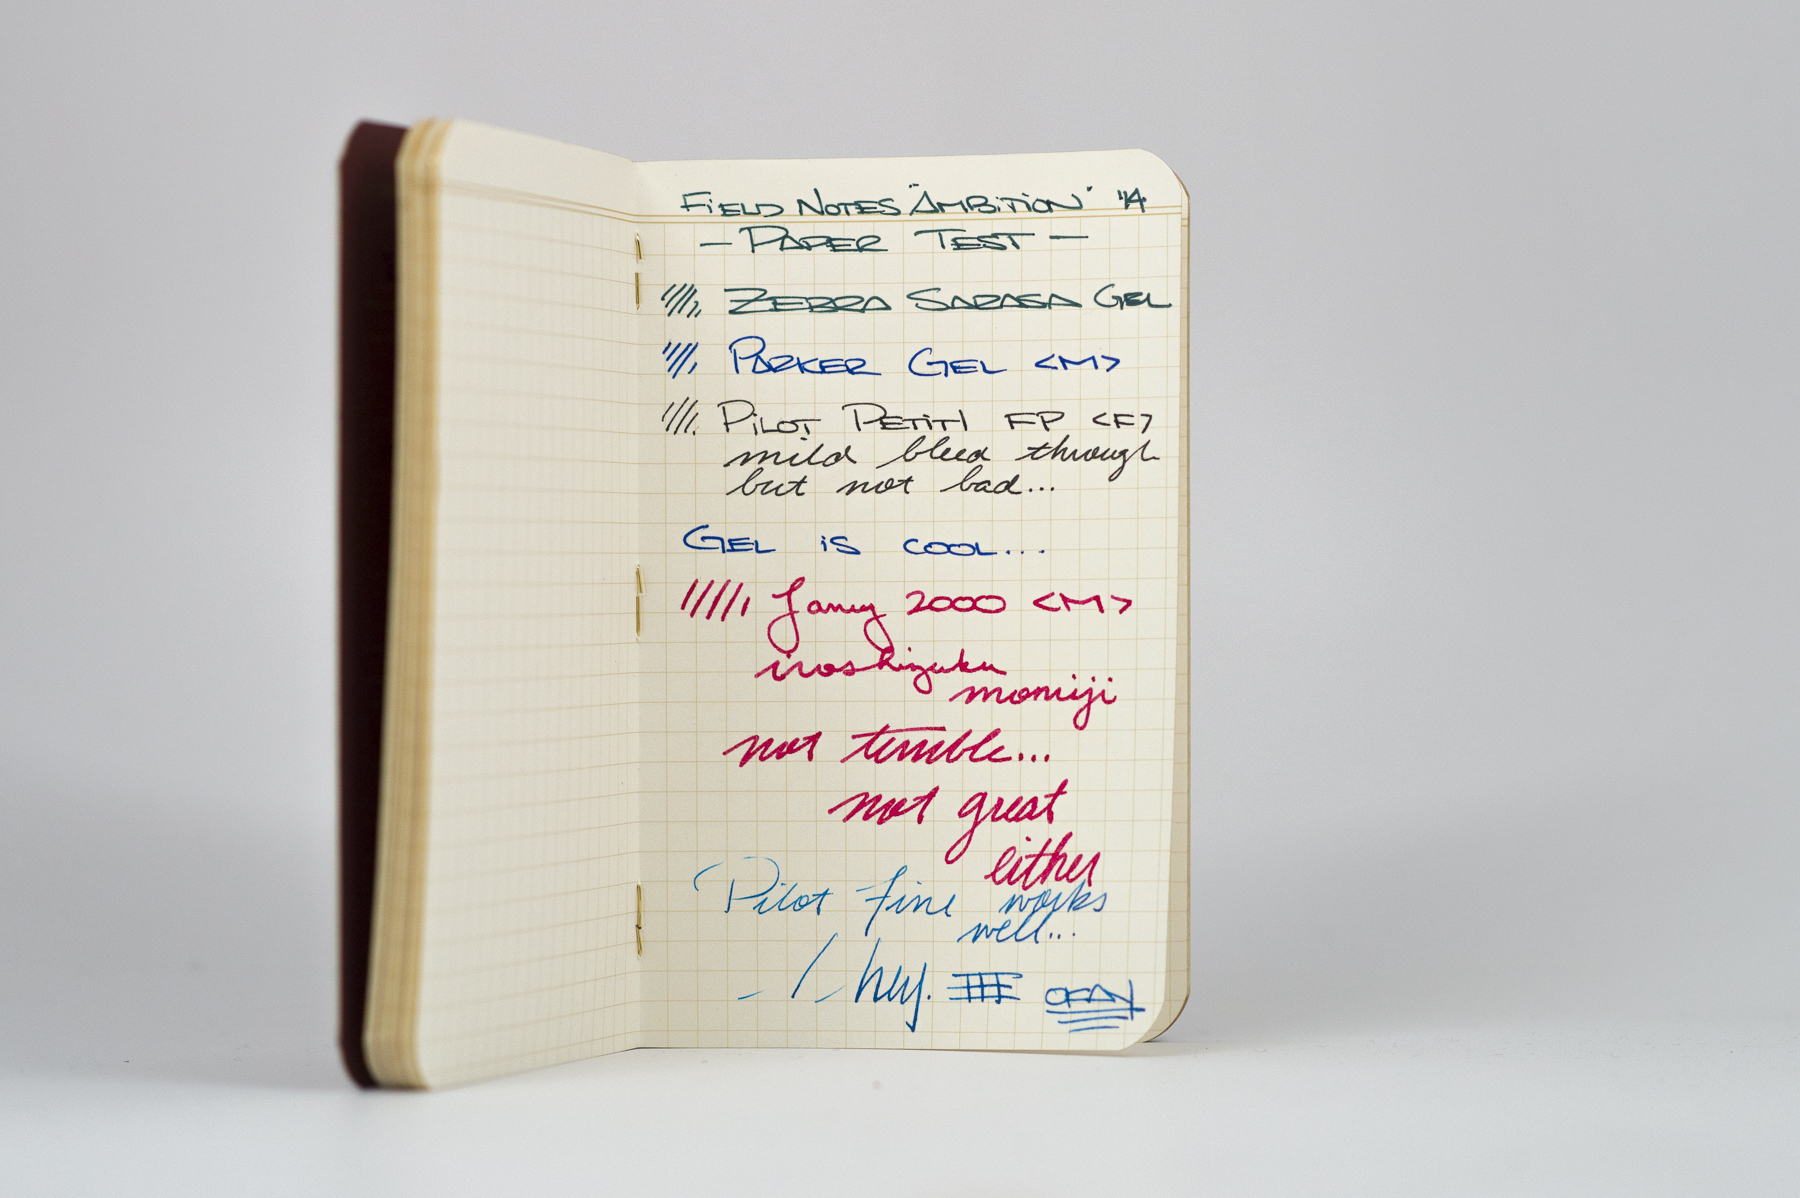 FiELD NOTES "AMBiTiON" '14
- PAPER TEST -
ZEBRA SARASA GEL
PARKER GEL <M>
PiLOT PETiT1 FP <F>
mild bleed through
but not bad...
GEL iS COOL...
Lamy 2000 <M>
iroshizuku
momiji
not terrible...
not great
either
Pilot fine works
well...
hey.
OKAY